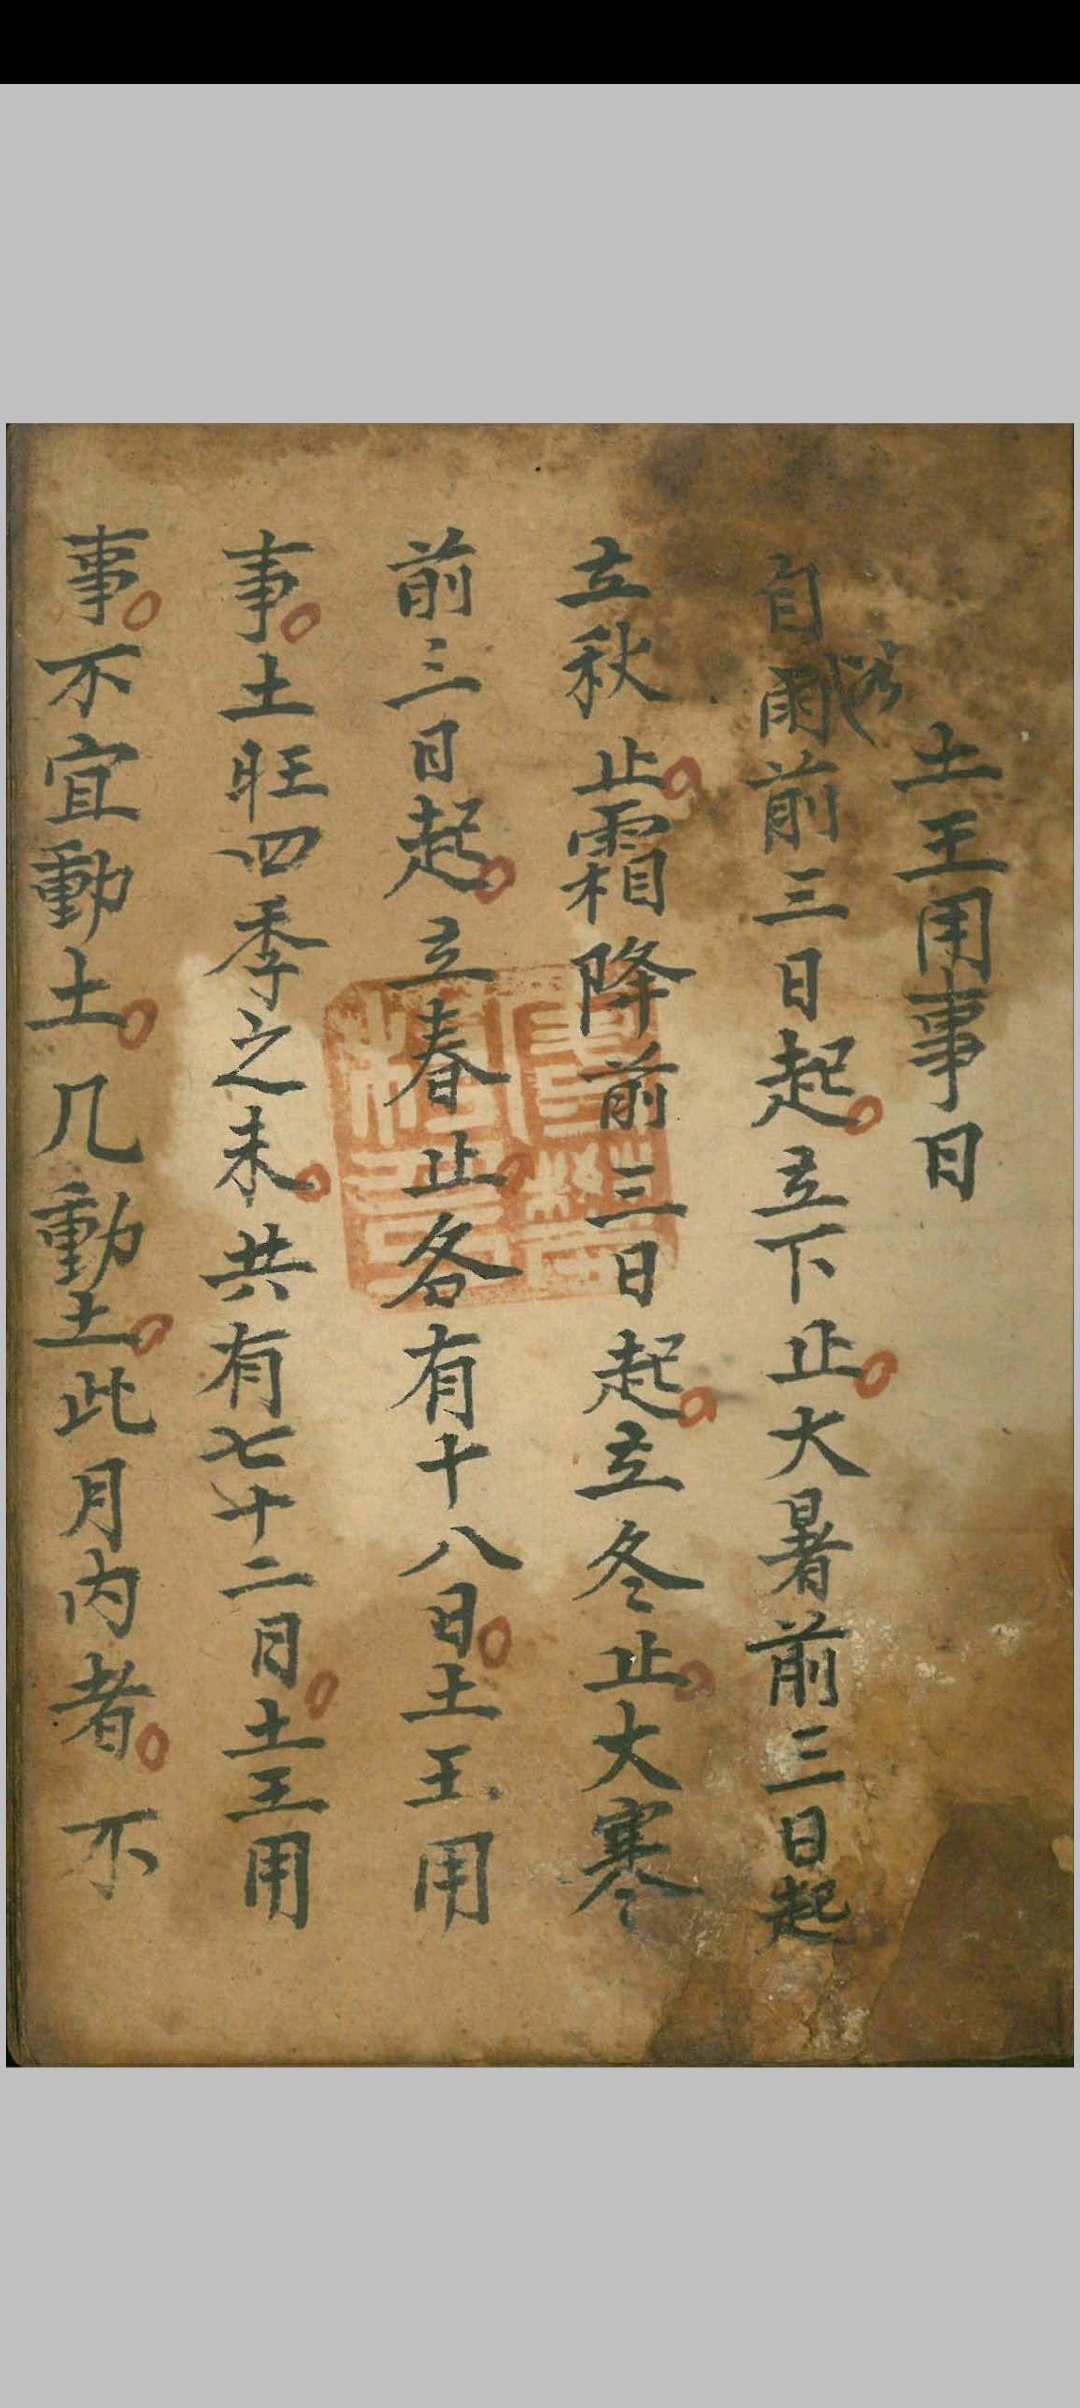 土王用事日
自雨前三日起立下止大暑前三日起
谷
立秋止霜降前三日起立冬止大寒
前三日起立春止各有十八日土王用
事土旺四季之末共有七十二日土王用
事不宜動土几動土此月内者不